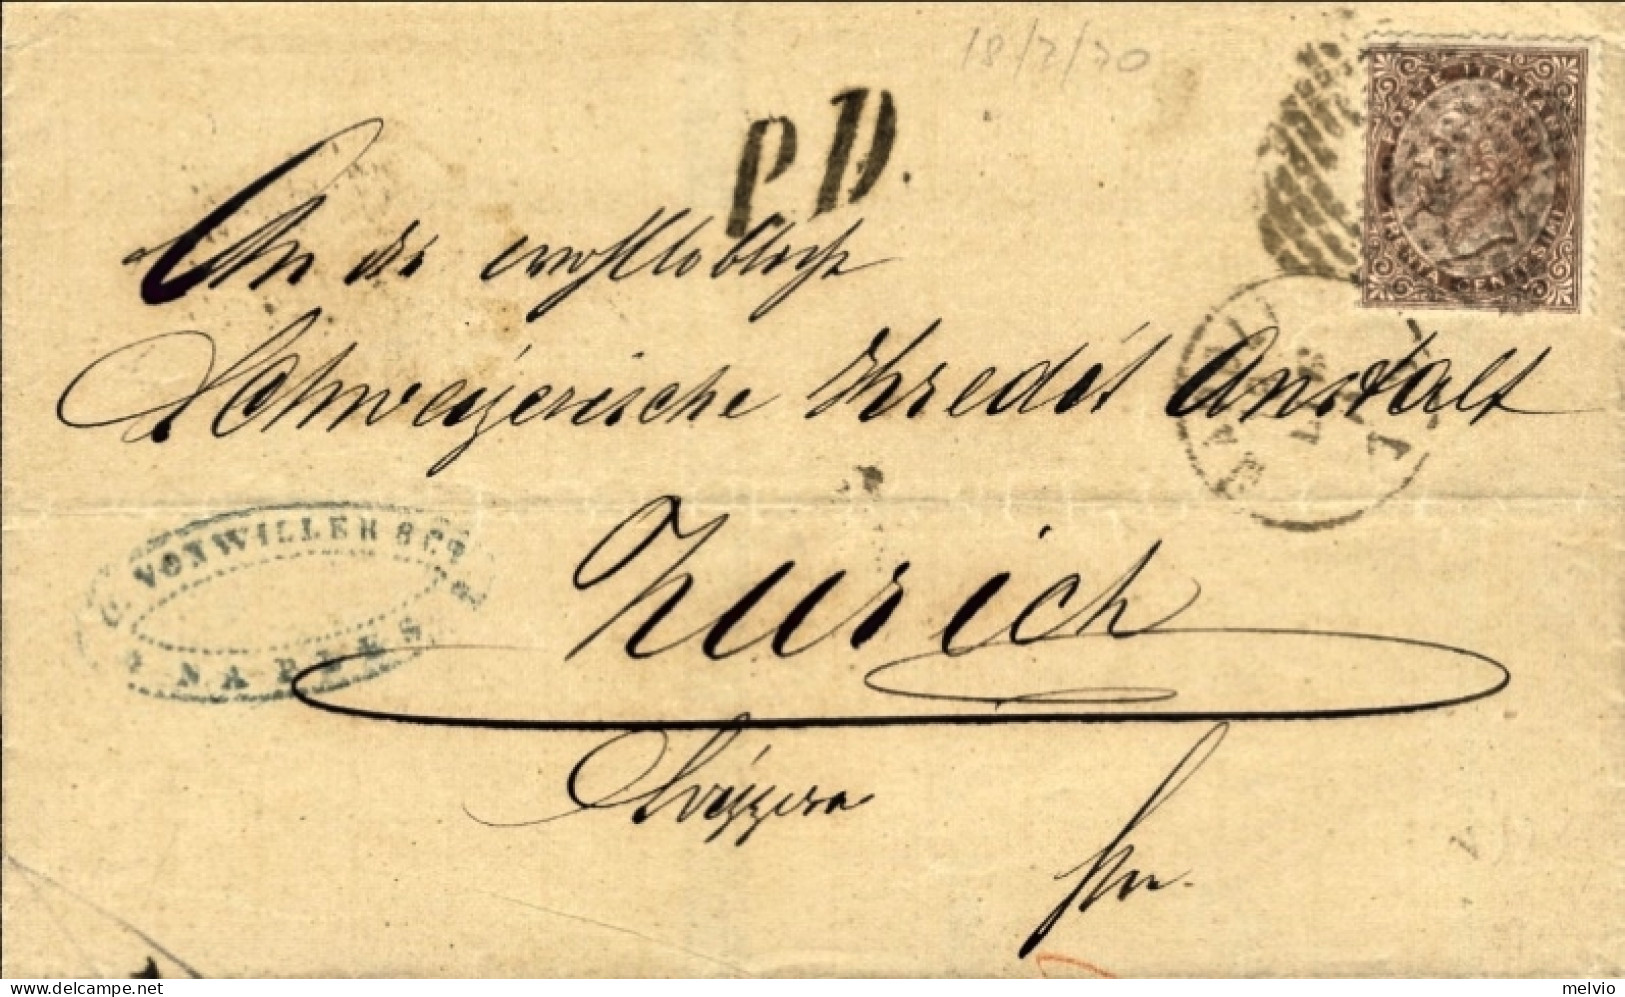 18/7/70
P.D.
POSTE ITALIANE
TRENTA CENTESIMI
An die
Schweizerische Kredit Anstalt
NAPOLI
18
C. VONWILLER & Cº
NAPLES
Zurich
Svizzera
delcampe.net
melvio